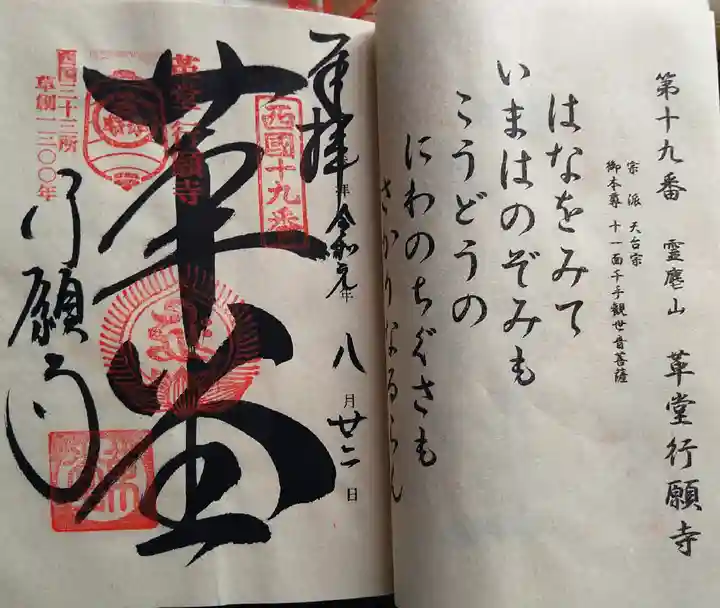 第十九番　霊麀山　革堂行願寺
宗派　天台宗
御本尊　十一面千手観世音菩薩
はなをみて
いまはのぞみも
こうどうの
にわのちぐさも
さかりなるらん
奉拝
令和元年八月廿二日
西國十九番
革堂
革堂行願寺
西国三十三所
草創一三〇〇年
行願寺